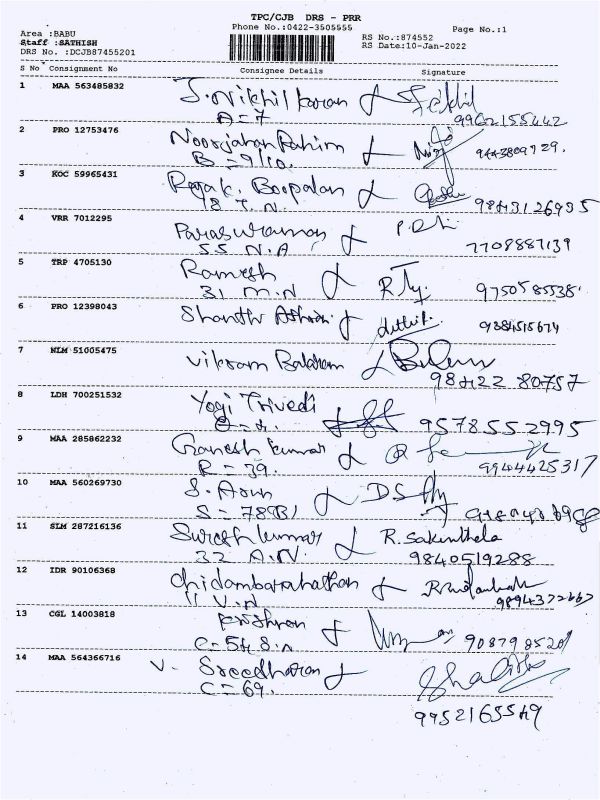 TPC/CJB DRS - PRR
Phone No.:0422-3505555
Page No.:1
Area :BABU
Staff :SATHISH
DRS No. :DCJB87455201
RS No.:874552
RS Date:10-Jan-2022
S No Consignment No Consignee Details Signature
1 MAA 563485832 J. Nikhil Karan
A=7 9962155442
2 PRO 12753476 Noorjahan Rahim
B=9/10. 9443809729.
3 KOC 59965431 Rega K. Boopalan
18 T.N. 9843126935
4 VRR 7012295 Parasuraman
55 N.A 7708887139
5 TRP 4705130 Ramesh
31 M.N 9750585538.
6 PRO 12398043 Shanthi 9884515674
7 NLM 51005475 Vikram Balaram
984122 80757
8 LDH 700251532 Yogi Trivedi
9578552995
9 MAA 285862232 Ganesh Kumar
R=39. 9944425317
10 MAA 560269730 S. Arun
S=78B1
11 SLM 287216136 Suresh Kumar R. Sakunthala
32 A.N. 9840519288
12 IDR 90106368 Chidambaranathan
11 V.N
13 CGL 14003818
14 MAA 564366716 V. Sreedharan
C=69.
9952165549